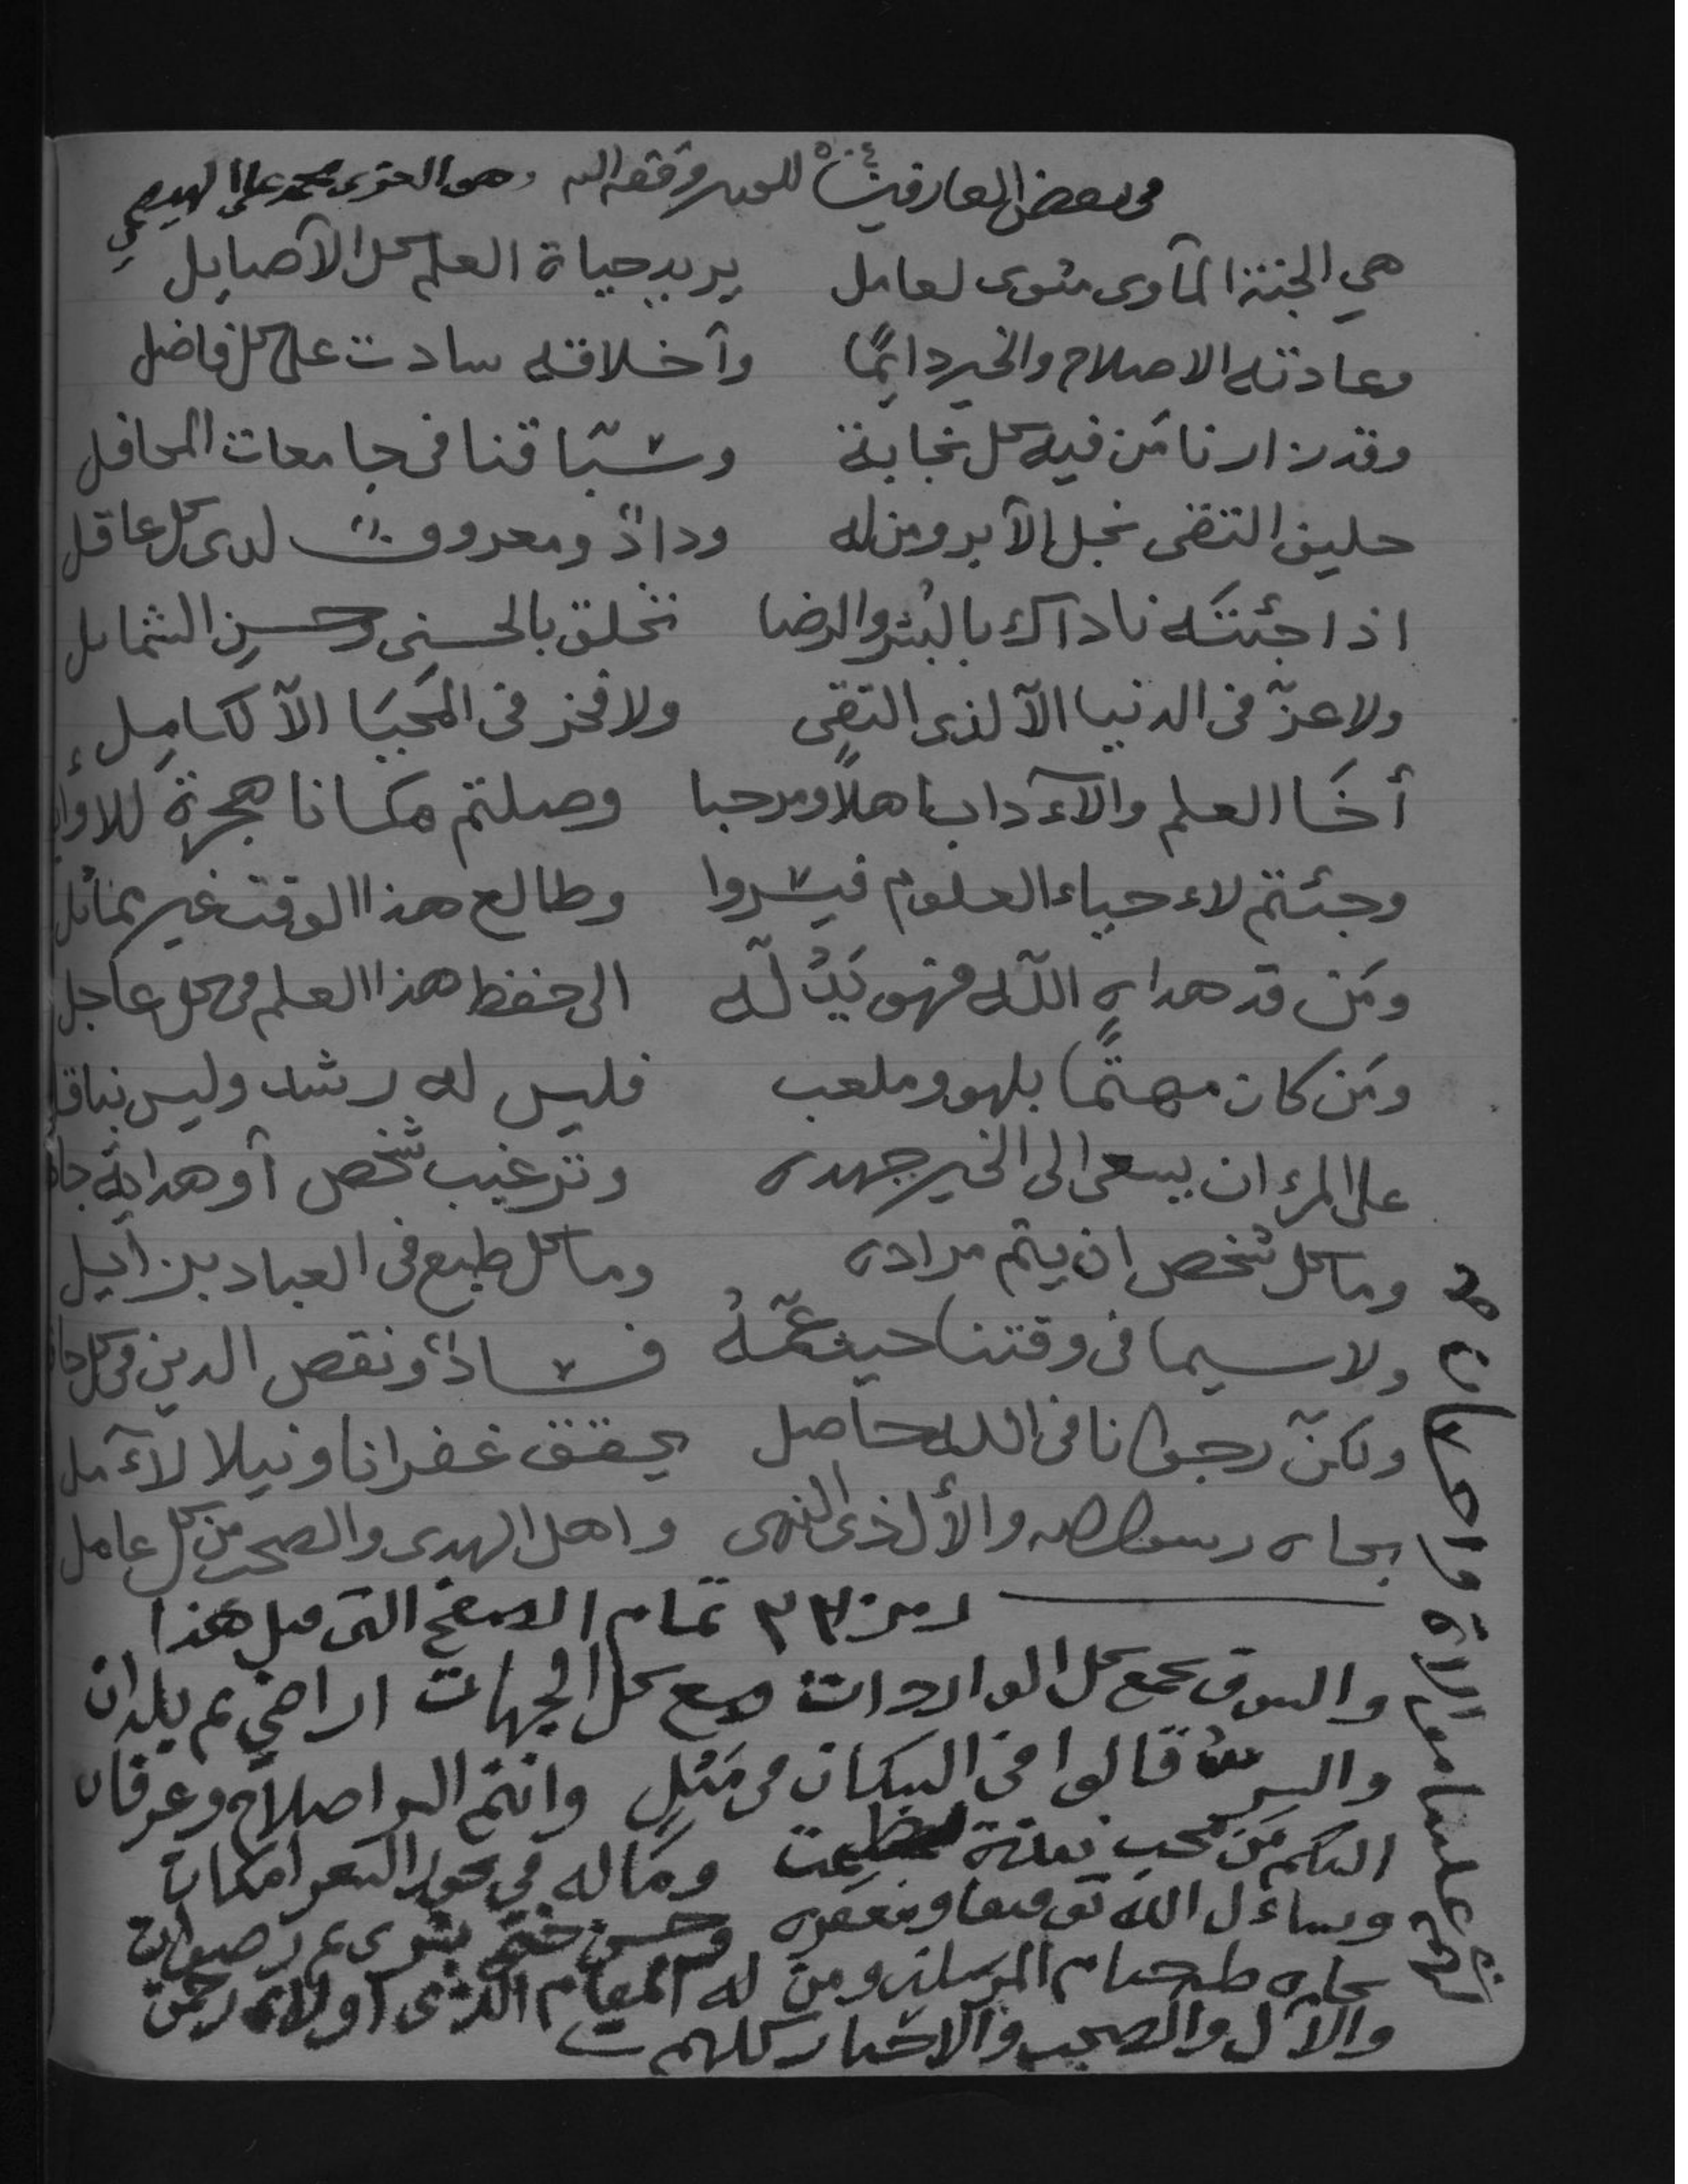 في بعض العارفين للعبد وفقه الله وهو الحقير محمد علي
هي الجنة المآوى مثوى لعامل يريد حياة العلم كل الآصايل
وعادته الاصلاح والخير دايمًا وآخلاقه سادت على كل فاضل
وقد زارنا مَن فيه كل نجابة وسبّاقنا في جامعات المحافل
حليف التقى نجل الآبر ومن له ودادٌ ومعروفٌ لدى كل عاقل
اذا جئتَه ناداك بالبُشر والرضا تخلق بالحسنى وحسنِ الشمايل
ولا عزّ في الدنيا الآ لذى التقى ولا فخز في المَحيَا الآ لكامِل
أخَا العلم والآءداب اهلاً ومرحبا وصلتم مكانا هجرة للاوا
وجئتم لاءحياء العلوم فيسّروا وطالع هذا الوقت غير
ومَن قد هداه اللّه فهو يَدُلّه الى حفظ هذا العلم في كل عاجل
ومَن كان مهتمًّا بلهو وملعب فليس له رشد وليس بناقل
على المرء ان يسعى الى الخير جهده وترغيب شخص آو هداية جا
وما كل شخص ان يتم مراده وما كل طبع في العباد بزآيل
ولاسيما في وقتنا حيث عَمّهُ فسادٌ ونقص الدين في كل حا
ولكنّ رجوانا في الله حاصل يحقق غفرانا ونيلا لآءمل
بجاه رسول الله والأل ذى النهى واهل الهدى والصحب من كل عامل
رمز ٣٣ تمام الاصفح التي قبل هذا
والسوق يجمع كل الواردات مع كل الجهات اراضي ثم بلدان
قالوا في مَثلٍ وانتم اصلاح وعرفان
اليكم مَن محب وماله في بحور الشعر امكان
ويساءل الله توفيقا ومغفره وحسن ختم بشرى ثم رضوان
بجاه طه ختام المرسلين ومن له المقام الذى اولاه رحمن
والآل والصحب والاخيار كلهم
علينا معه واحسان